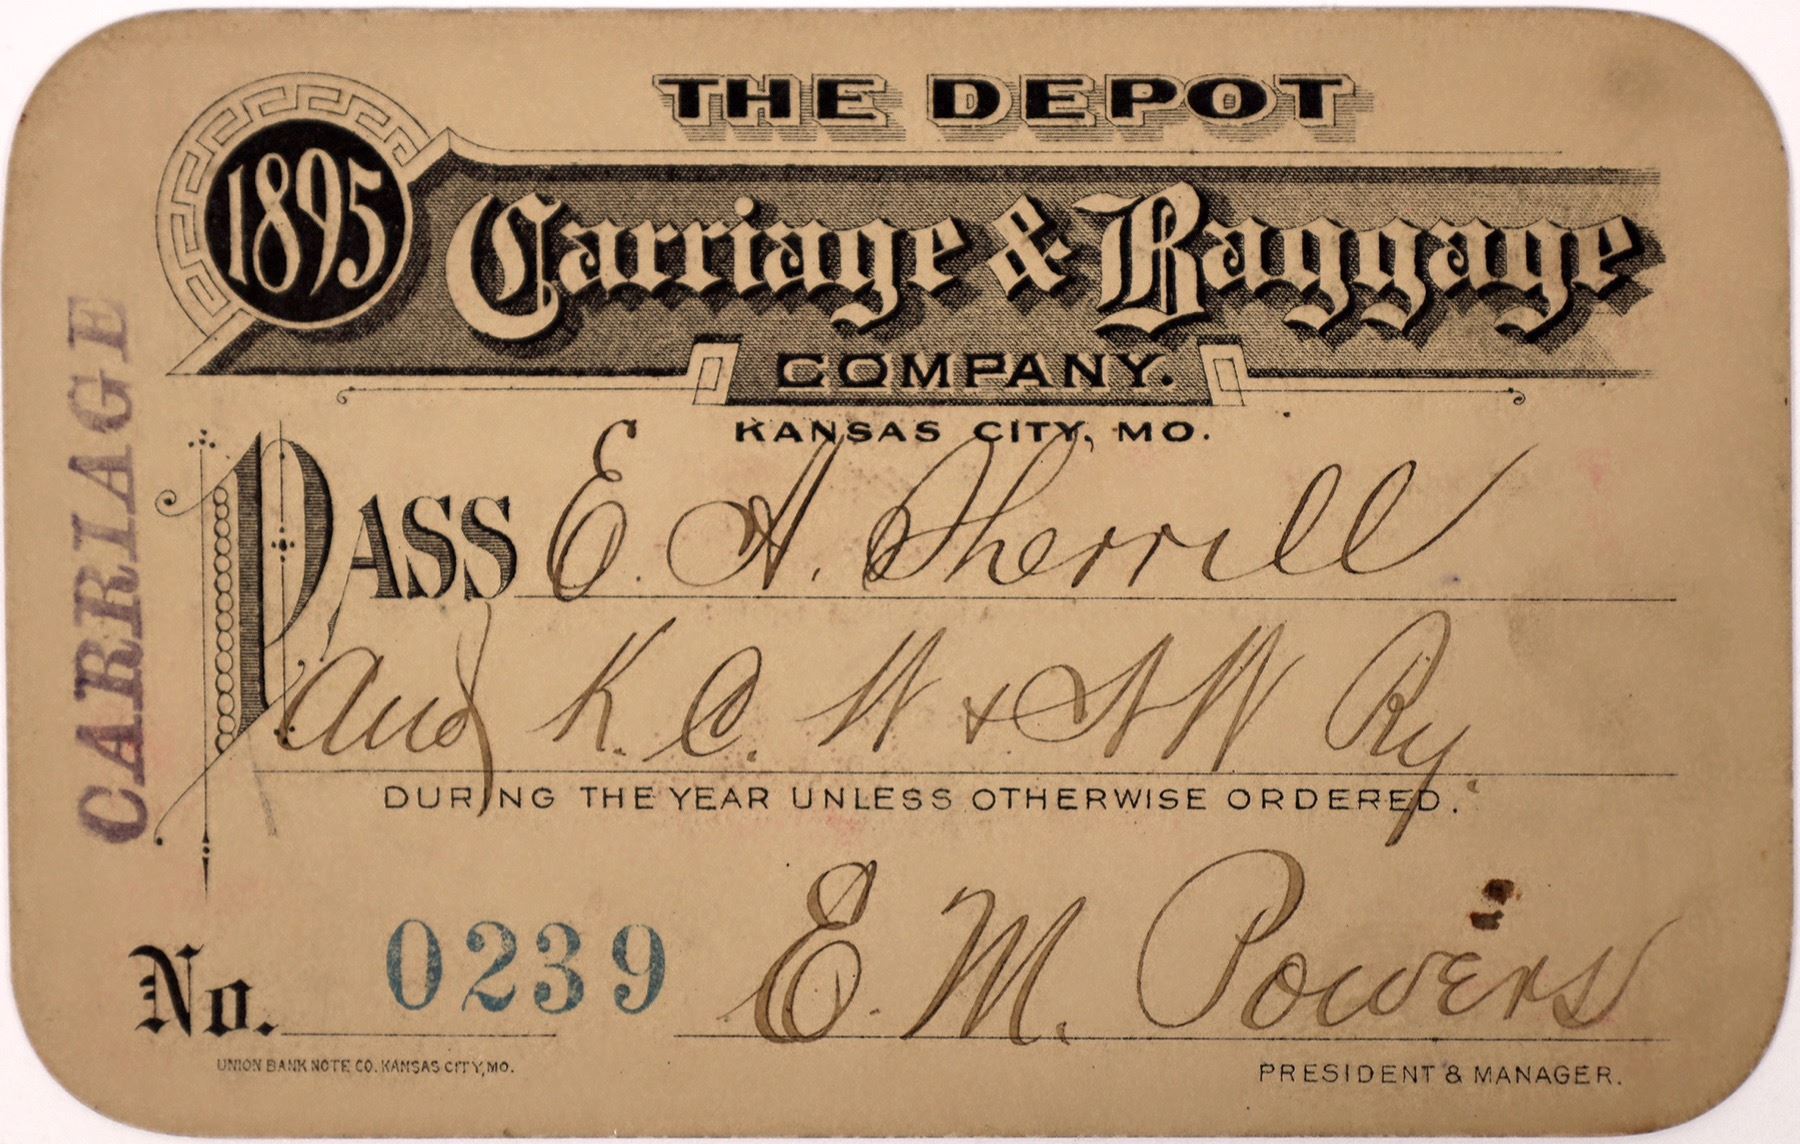 THE DEPOT
1895
Carriage & Baggage
COMPANY.
KANSAS CITY, MO.
CARRIAGE
PASS E. A. Sherrill
Aud K. C. W & N W Ry.
DURING THE YEAR UNLESS OTHERWISE ORDERED.
No. 0239
E. M. Powers
UNION BANK NOTE CO. KANSAS CITY, MO.
PRESIDENT & MANAGER.